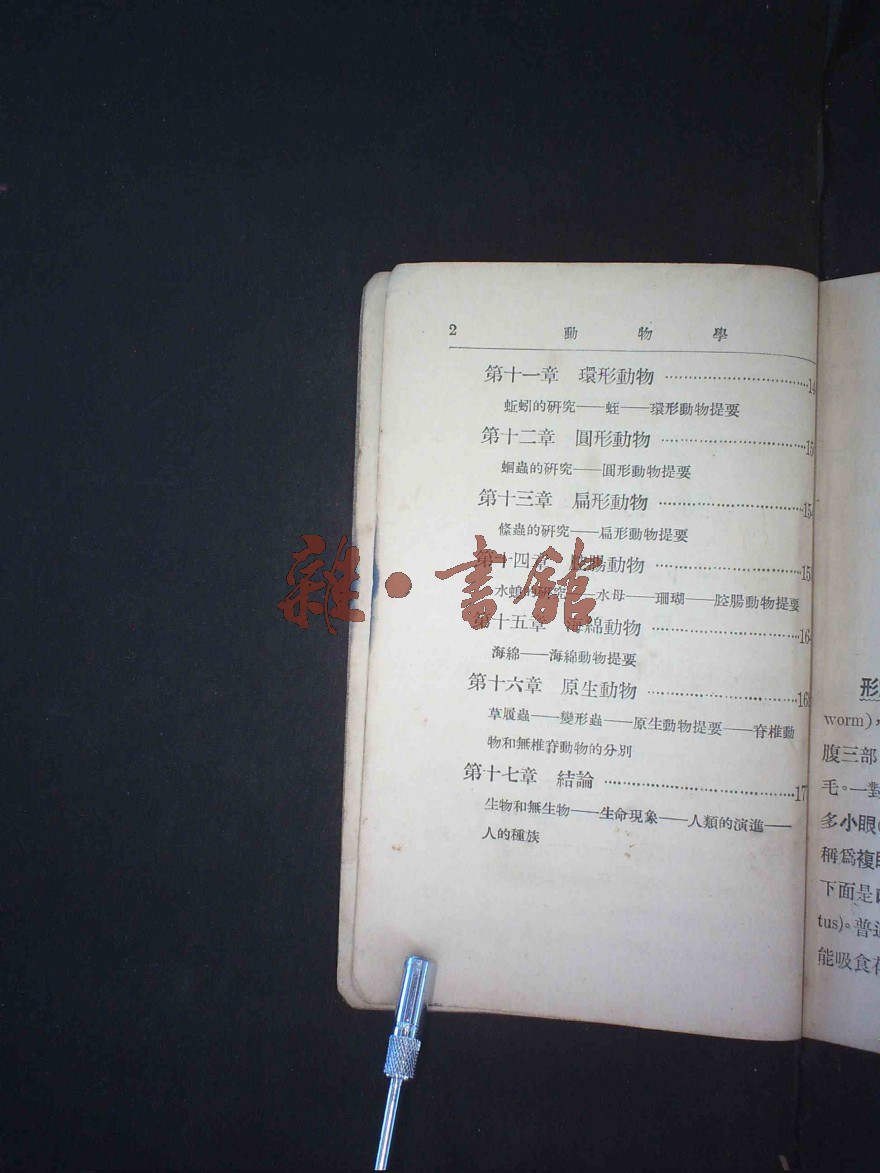 2 動物學
第十一章 環形動物 ……………………………14
蚯蚓的研究——蛭——環形動物提要
第十二章 圓形動物 ……………………………15
蛔蟲的研究——圓形動物提要
第十三章 扁形動物 ……………………………154
絛蟲的研究——扁形動物提要
第十四章 腔腸動物 ……………………………15
水螅的研究——水母——珊瑚——腔腸動物提要
第十五章 海綿動物 ……………………………164
海綿——海綿動物提要
第十六章 原生動物 ……………………………16
草履蟲——變形蟲——原生動物提要——脊椎動
物和無椎脊動物的分別
第十七章 結論 ……………………………17
生物和無生物——生命現象——人類的演進——
人的種族
雜·書館
形
worm),
腹三部
毛。一對
多小眼(
稱爲複
下面是
tus)。普通
能吸食花